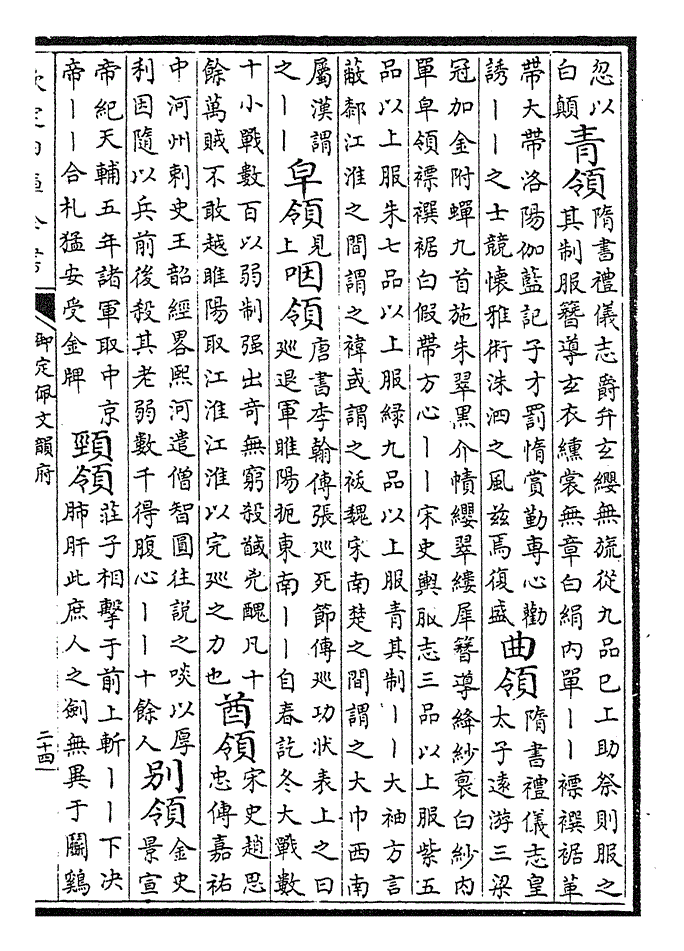 忽以
白顛
青領
隋書禮儀志爵弁玄纓無旒從九品已上助祭則服之
其制服簪導玄衣纁裳無章白絹內單丨丨褾襈裾革
帶大帶洛陽伽藍記子才罰惰賞勤專心勸
誘丨丨之士競懷雅術洙泗之風兹焉復盛
曲領
隋書禮儀志皇
太子遠游三梁
冠加金附蟬九首施朱翠黑介幘纓翠緌犀簪導絳紗裏白紗內
單皁領褾襈裾白假帶方心丨丨宋史輿服志三品以上服紫五
品以上服朱七品以上服綠九品以上服青其制丨丨大袖方言
蔽厀江淮之間謂之褘或謂之袚魏宋南楚之間謂之大巾西南
屬漢謂
之丨丨
皁領
見
上
咽領
唐書李翰傳張巡死節傳巡功狀表上之曰
巡退軍睢陽扼東南丨丨自春訖冬大戰數
十小戰數百以弱制强出奇無窮殺馘兇醜凡十
餘萬賊不敢越睢陽取江淮江淮以完巡之力也
酋領
宋史趙思
忠傳嘉祐
中河州刺史王韶經畧熙河遣僧智圓往說之啖以厚
利因隨以兵前後殺其老弱數千得腹心丨丨十餘人
别領
金史
景宣
帝紀天輔五年諸軍取中京
帝丨丨合札猛安受金牌
頸領
莊子相擊于前上斬丨丨下决
肺肝此庶人之劍無異于鬭鷄
欽定四庫全書
御定佩文韻府
二十四